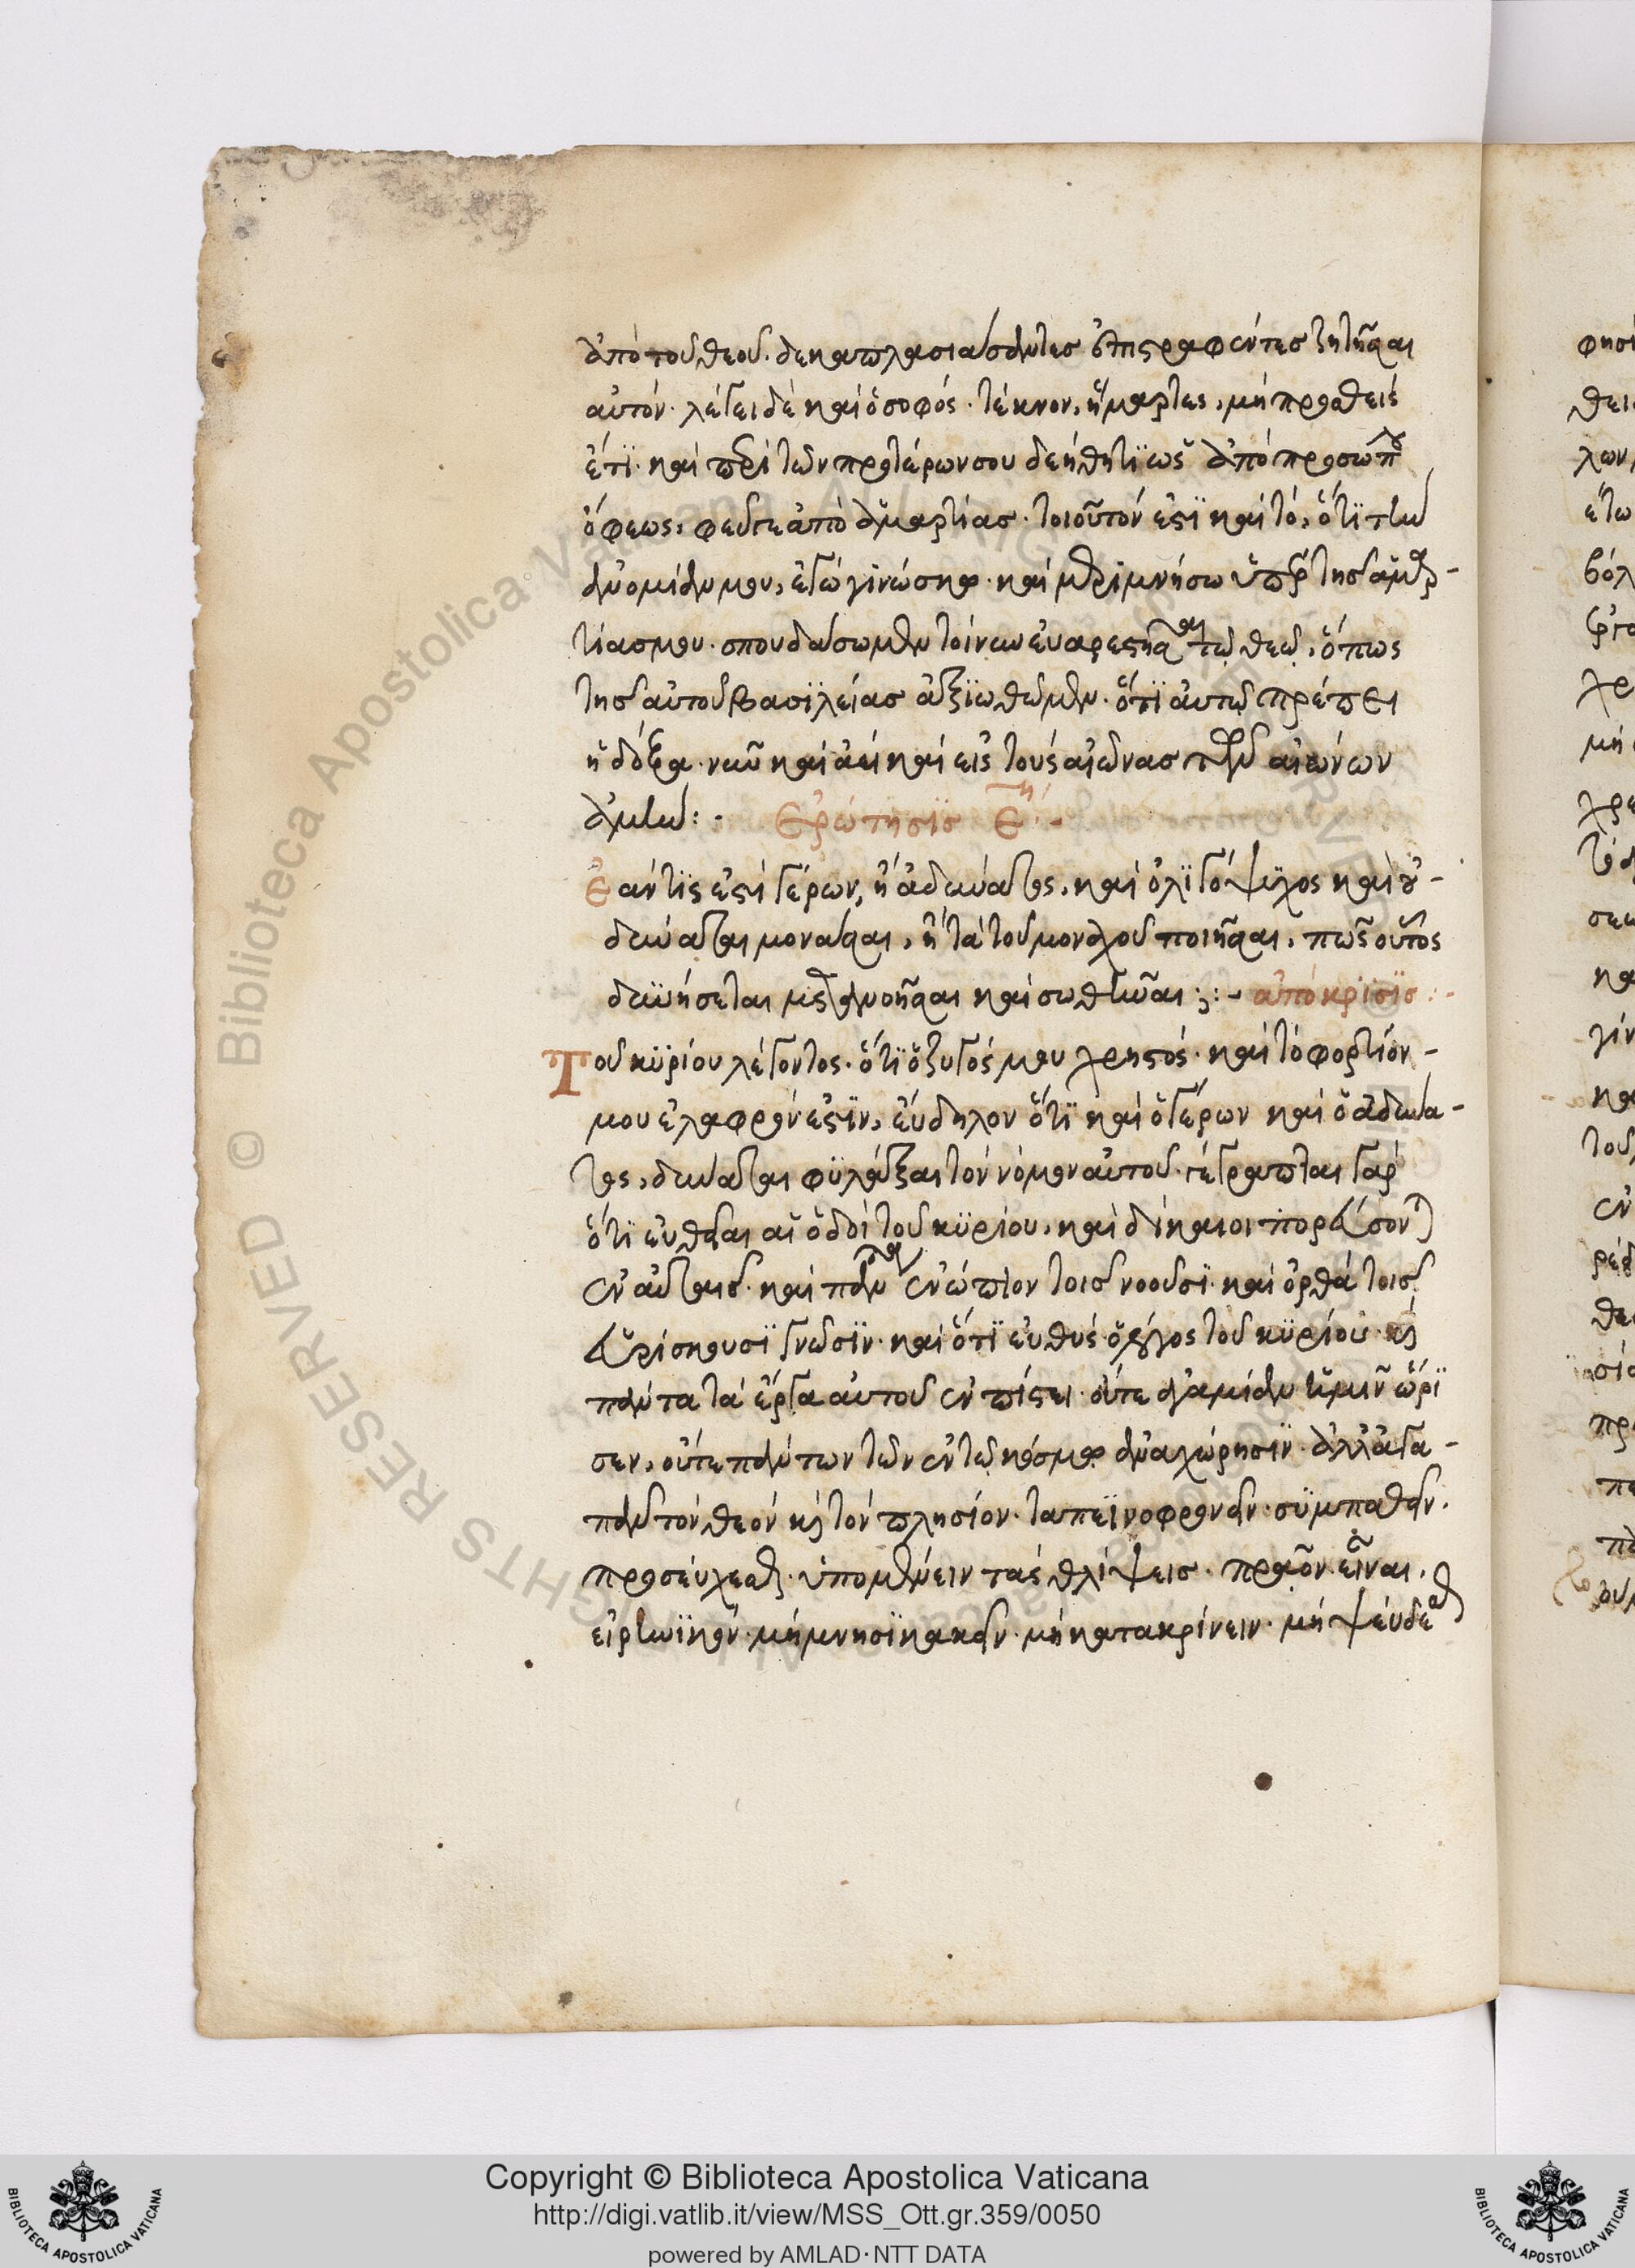 ἀπὸ τοῦ θεοῦ. δεκαπλασιάσαντες ἐπιστραφέντες ζητῆσαι
αὐτόν. λέγει δὲ καὶ ὁ σοφός. τέκνον, ἥμαρτες, μὴ προσθεὶς
ἔτϊ. καὶ περὶ τῶν προτέρων σου δεήθητϊ ὡς ἀπὸ προσώπου
ὄφεως, φεῦγε ἀπὸ ἁμαρτίας. τοιοῦτόν ἐστϊ καὶ τό, ὅτϊ τὴν
ἀνομίαν μου, ἐγὼ γινώσκω. καὶ μεριμνήσω ὑπὲρ τῆς ἁμαρ-
τίας μου. σπουδάσωμεν τοίνυν εὐαρεστῆσαι τῷ θεῷ, ὅπως
τῆς αὐτοῦ βασϊλείας ἀξϊωθῶμεν. ὅτϊ αὐτῷ πρέπει
ἡ δόξα. νῦν καὶ ἀεὶ καὶ εἰς τοὺς αἰῶνας τῶν αἰώνων
ἀμήν: - Ἐρώτησϊς Ε´η: -
Ἐάν τϊς ἐστὶ γέρων, ἢ ἀδύνατος, καὶ ὀλϊγόψϋχος καὶ οὐ -
δύναται μονάσαι, ἢ τὰ τοῦ μοναχοῦ ποιῆσαι, πῶς οὗτος
δυνήσεται μετανοῆσαι καὶ σωθῆναι; :- ἀπόκρϊσϊς :-
Τοῦ κϋρίου λέγοντος. ὅτϊ ὁ ζυγός μου χρηστός. καὶ τὸ φορτίον -
μου ἐλαφρόν ἐστϊν, εὔδηλον ὅτϊ καὶ ὁ γέρων καὶ ὁ ἀδύνα-
τος, δύναται φϋλάξαι τὸν νόμον αὐτοῦ. γέγραπται γὰρ
ὅτϊ εὐθεῖαι αἱ ὁδοὶ τοῦ κϋρίου, καὶ δίκαιοι πορεύσονται
ἐν αὐταῖς. καὶ πάντα ἐνώπϊον τοῖς νοοῦσϊ. καὶ ὀρθὰ τοῖς
εὑρίσκουσϊ γνῶσϊν. καὶ ὅτϊ εὐθὺς ὁ λόγος τοῦ κϋρίου καὶ
πάντα τὰ ἔργα αὐτοῦ ἐν πίστει. οὔτε ἀγαμίαν ἡμῖν ὥρϊ
σεν, οὔτε πάντων τῶν ἐν τῷ κόσμῳ ἀναχώρησϊν. ἀλλ' ἀγα-
πᾶν τὸν θεὸν καὶ τὸν πλησίον. ταπεϊνοφρονεῖν. σϋμπαθεῖν.
προσεύχεσθαι. ὑπομένειν τὰς θλίψεις. πρᾶον εἶναι.
εἰρηνϊκόν. μὴ μνησϊκακεῖν. μὴ κατακρίνειν. μὴ ψεύδεσθαι
Copyright © Biblioteca Apostolica Vaticana
http://digi.vatlib.it/view/MSS_Ott.gr.359/0050
powered by AMLAD·NTT DATA